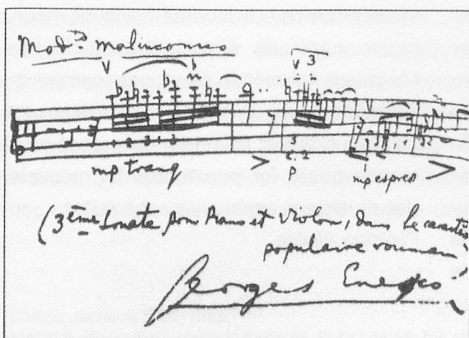 Modto malinconico
V 3
mp tranq
p mp espres
(3ème Sonate pour Piano et Violon, dans le caractère
populaire roumain)
Georges Enesco